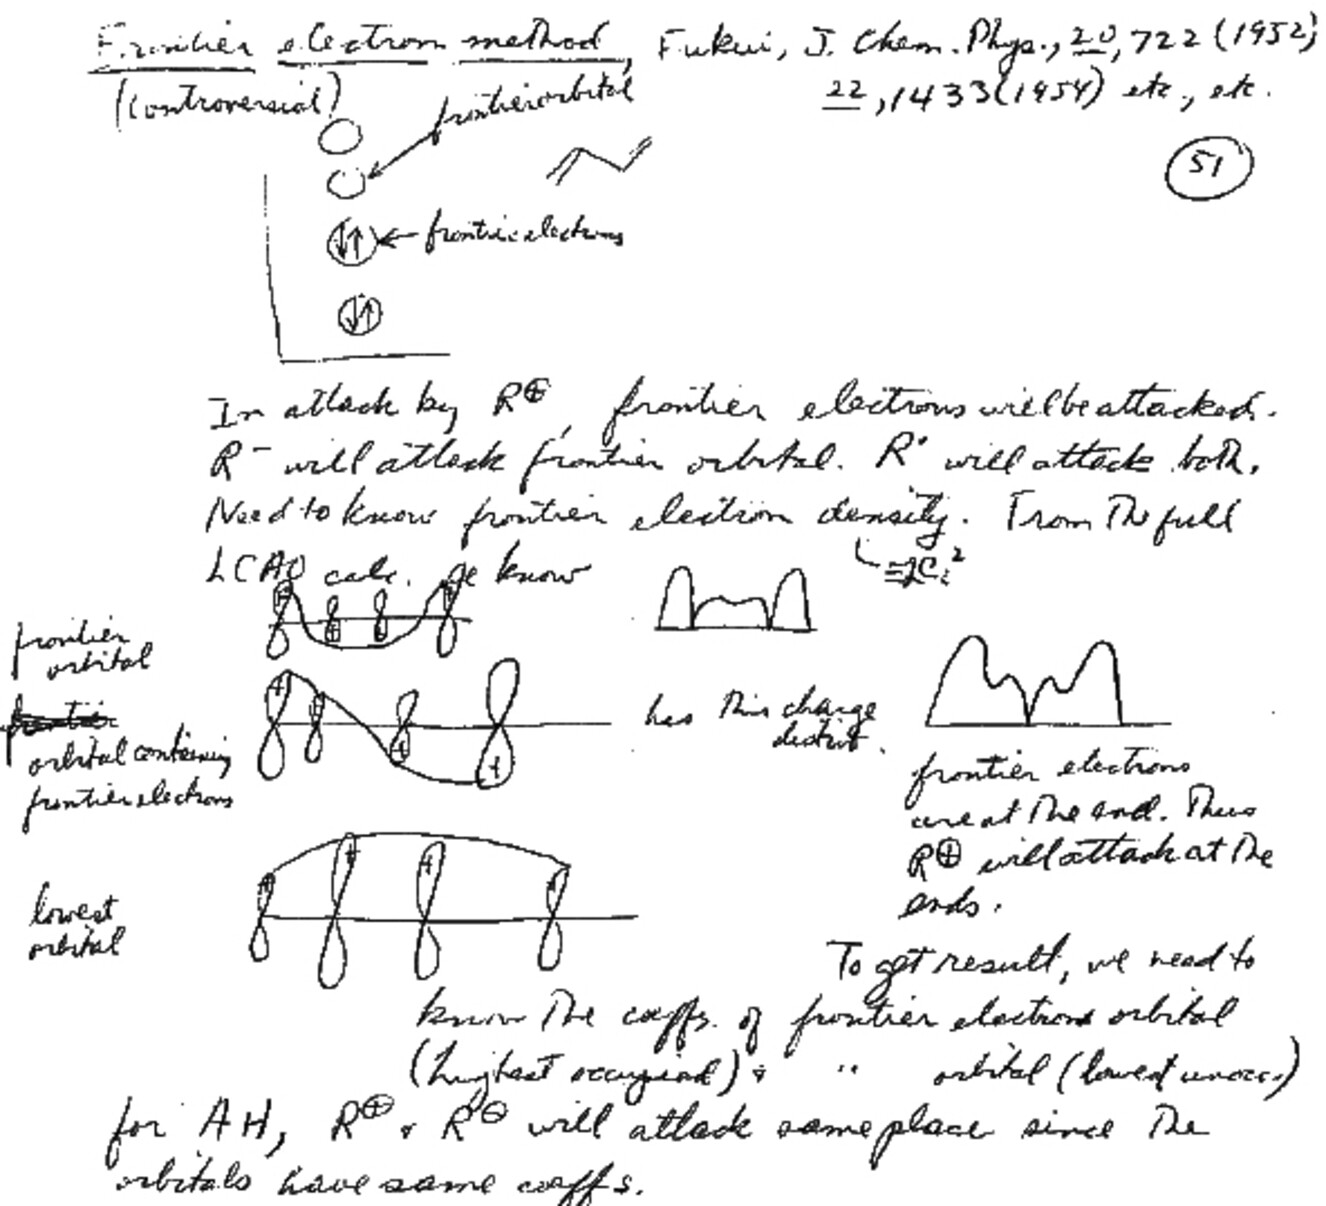 Frontier electron method, Fukui, J. Chem. Phys., 20, 722 (1952)
(controversial)
22, 1433 (1954) etc., etc.
frontier orbital
51
frontier electrons
In attack by R⊕, frontier electrons will be attacked.
R⁻ will attack frontier orbital. R· will attack both.
Need to know frontier electron density. From the full
LCAO calc. we know
=2Cᵢ²
frontier
orbital
orbital containing
frontier electrons
has this charge
distrib.
frontier electrons
are at the end. Thus
R⊕ will attack at the
ends.
lowest
orbital
To get result, we need to
know the coeffs. of frontier electrons orbital
(highest occupied) & " orbital (lowest unocc.)
for AH, R⊕ & R⊖ will attack same place since the
orbitals have same coeffs.